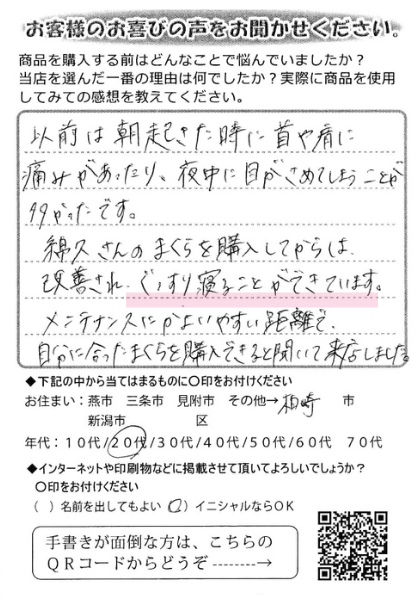 お客様のお喜びの声をお聞かせください。
商品を購入する前はどんなことで悩んでいましたか？
当店を選んだ一番の理由は何でしたか？実際に商品を使用
してみての感想を教えてください。
以前は朝起きた時に首や肩に
痛みがあったり、夜中に目がさめてしまうことが
多かったです。
綿久さんのまくらを購入してからは
改善され、ぐっすり寝ることができています。
メンテナンスにかよいやすい距離で、
自分に合ったまくらを購入できると聞いて来店しました。
◆下記の中から当てはまるものに〇印をお付けください
お住まい：燕市　三条市　見附市　その他→柏崎　市
新潟市　　　　区
年代：１０代/２０代/３０代/４０代/５０代/６０代　７０代
◆インターネットや印刷物などに掲載させて頂いてよろしいでしょうか？
〇印をお付けください
（　）名前を出してもよい　（〇）イニシャルならＯＫ
手書きが面倒な方は、こちらの
ＱＲコードからどうぞ --------→